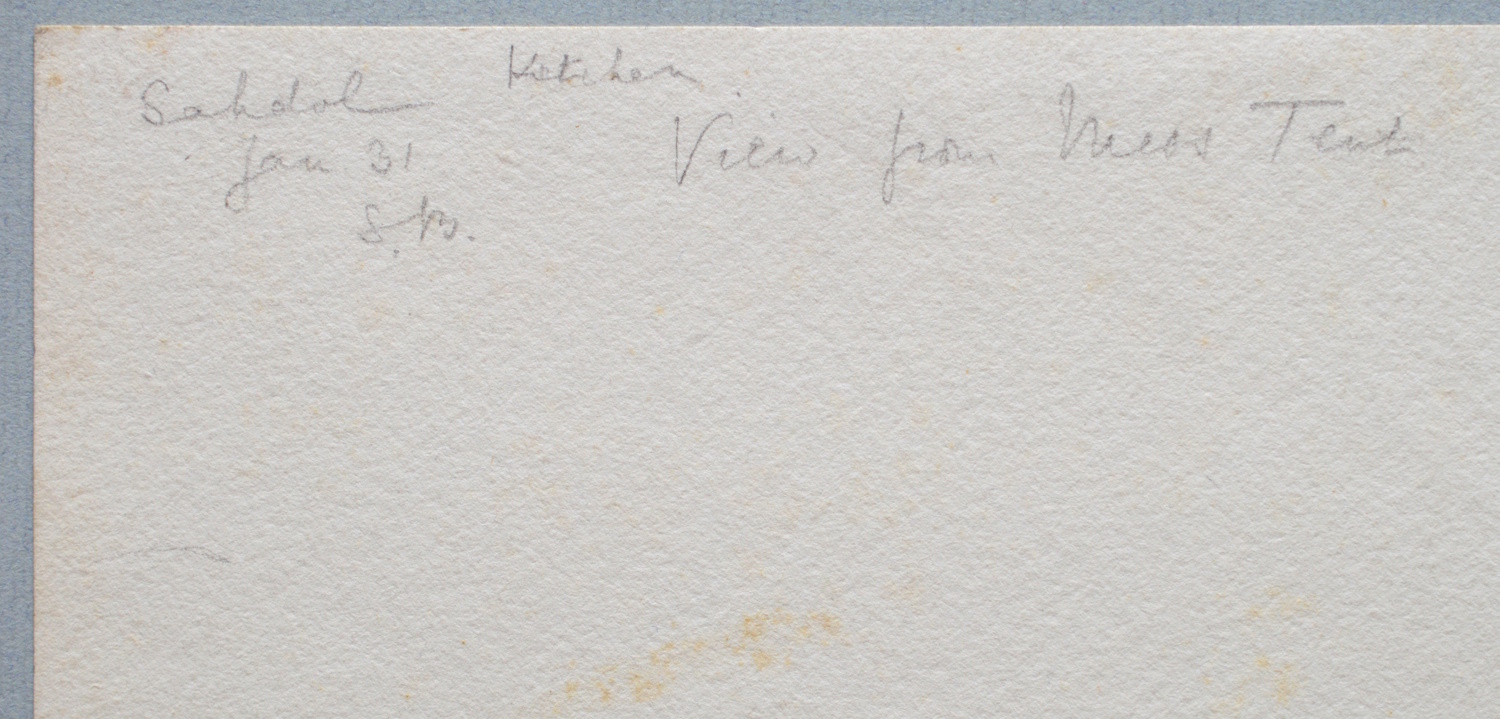 Kitchen
Sahdol
View from Mess Tent
Jan 31
S.B.